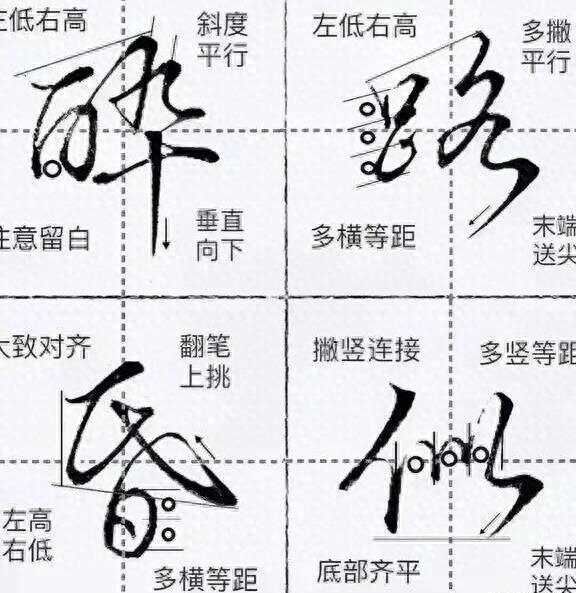 左低右高
斜度
平行
醉
注意留白
垂直
向下
左低右高
多撇
平行
路
多横等距
末端
送尖
大致对齐
翻笔
上挑
昏
左高
右低
多横等距
撇竖连接
多竖等距
似
底部齐平
末端
送尖